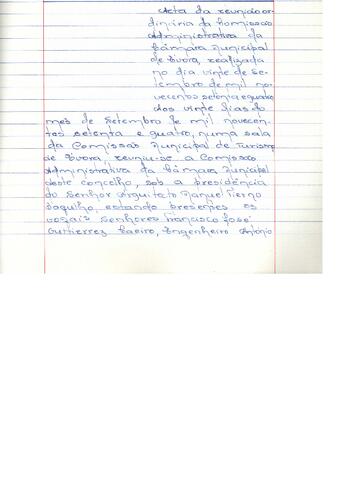 Acta da reunião or
dinária da Comissão
Administrativa da
Câmara Municipal
de Évora, realizada
no dia vinte de Se-
tembro de mil no-
vecentos setenta e quatro
Aos vinte dias do
mês de Setembro de mil novecen-
tos setenta e quatro, numa sala
da Comissão Municipal de Turismo
de Évora, reuniu-se a Comissão
Administrativa da Câmara Municipal
deste concelho, sob a presidência
do Senhor Arquitecto Manuel
estando presentes os
vogais Senhores Francisco José
Gutierrez Engenheiro António